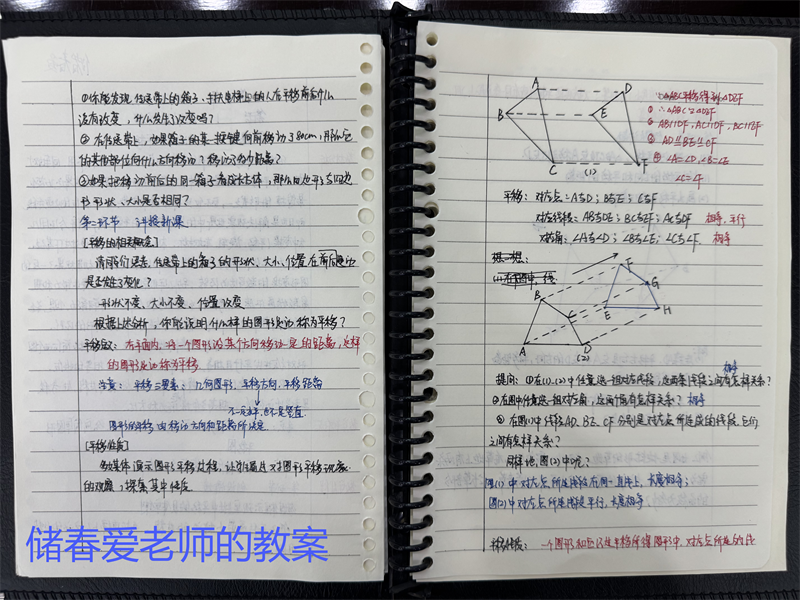 ①你能发现传送带上的箱子、手扶电梯上的人在平移前后什么
没有改变，什么发生了改变吗？
②在传送带上，如果箱子的某一按键向前移动了80cm，那么它
的其他部位向什么方向移动？移动了多少距离？
③如果把移动前后的同一箱子看成长方体，那么四边形与四边
形形状、大小是否相同？
第二环节 讲授新课
[平移的相关概念]
请同学们思考，传送带上的箱子的形状、大小、位置在前后运动
是否发生了变化？
形状不变、大小不变、位置改变
根据上述分析，你能说明什么样的图形运动称为平移？
平移定义：在平面内，将一个图形沿某个方向移动一定的距离，这样
的图形运动称为平移
注意：平移三要素：几何图形、平移方向、平移距离
不一定水平，也不是竖直
图形的平移由移动方向和距离所决定
[平移性质]
多媒体演示图形平移过程，让学生通过对图形平移现象
的观察，探索其中性质
储春爱老师的教案
A D
B E
C (1) F
∵△ABC平移得到△DEF
① △ABC≌△DEF
② AB∥DF，AC∥DF，BC∥EF
③ AD∥BE∥CF
④ ∠A=∠D，∠B=∠E
∠C=∠F
平移：对应点：A与D；B与E；C与F
对应线段：AB与DE；BC与EF；AC与DF 相等，平行
对应角：∠A与∠D；∠B与∠E；∠C与∠F 相等
想一想：
F
G
B
C E H
A D
(2)
相等
提问：①在(1)、(2)中任意选一组对应线段，这两条线段之间有怎样关系？
②在图中任意选一组对应角，这两个角有怎样关系？相等
③在图(1)中线段AD、BE、CF分别是对应点所连成的线段，它们
之间有怎样关系？
同样地，图(2)中呢？
图(1)中对应点所连线段在同一直线上，长度相等；
图(2)中对应点所连线段平行，长度相等
平移性质：一个图形和它经过平移所得图形中，对应点所连的线段